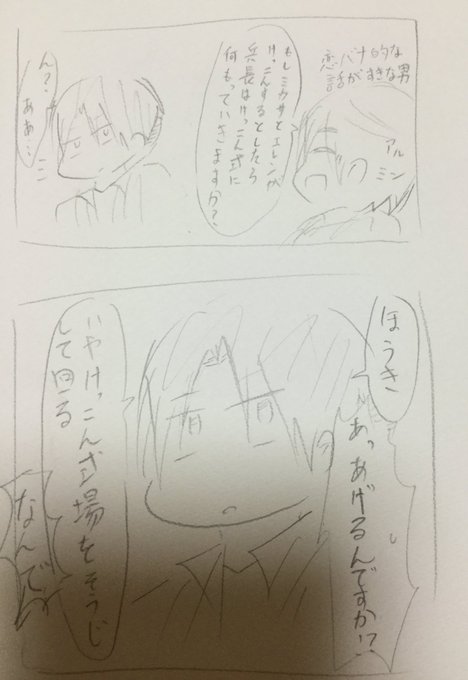 恋バナ的な
話がすきな男
アル
ミン
もしミカサとエレンが
けっこんするとしたら
兵長はけっこん式に
何もっていきますか？
ん？
ああ…
ほうき
あっあげるんですか!?
いやけっこん式場をそうじ
して回る
なんで